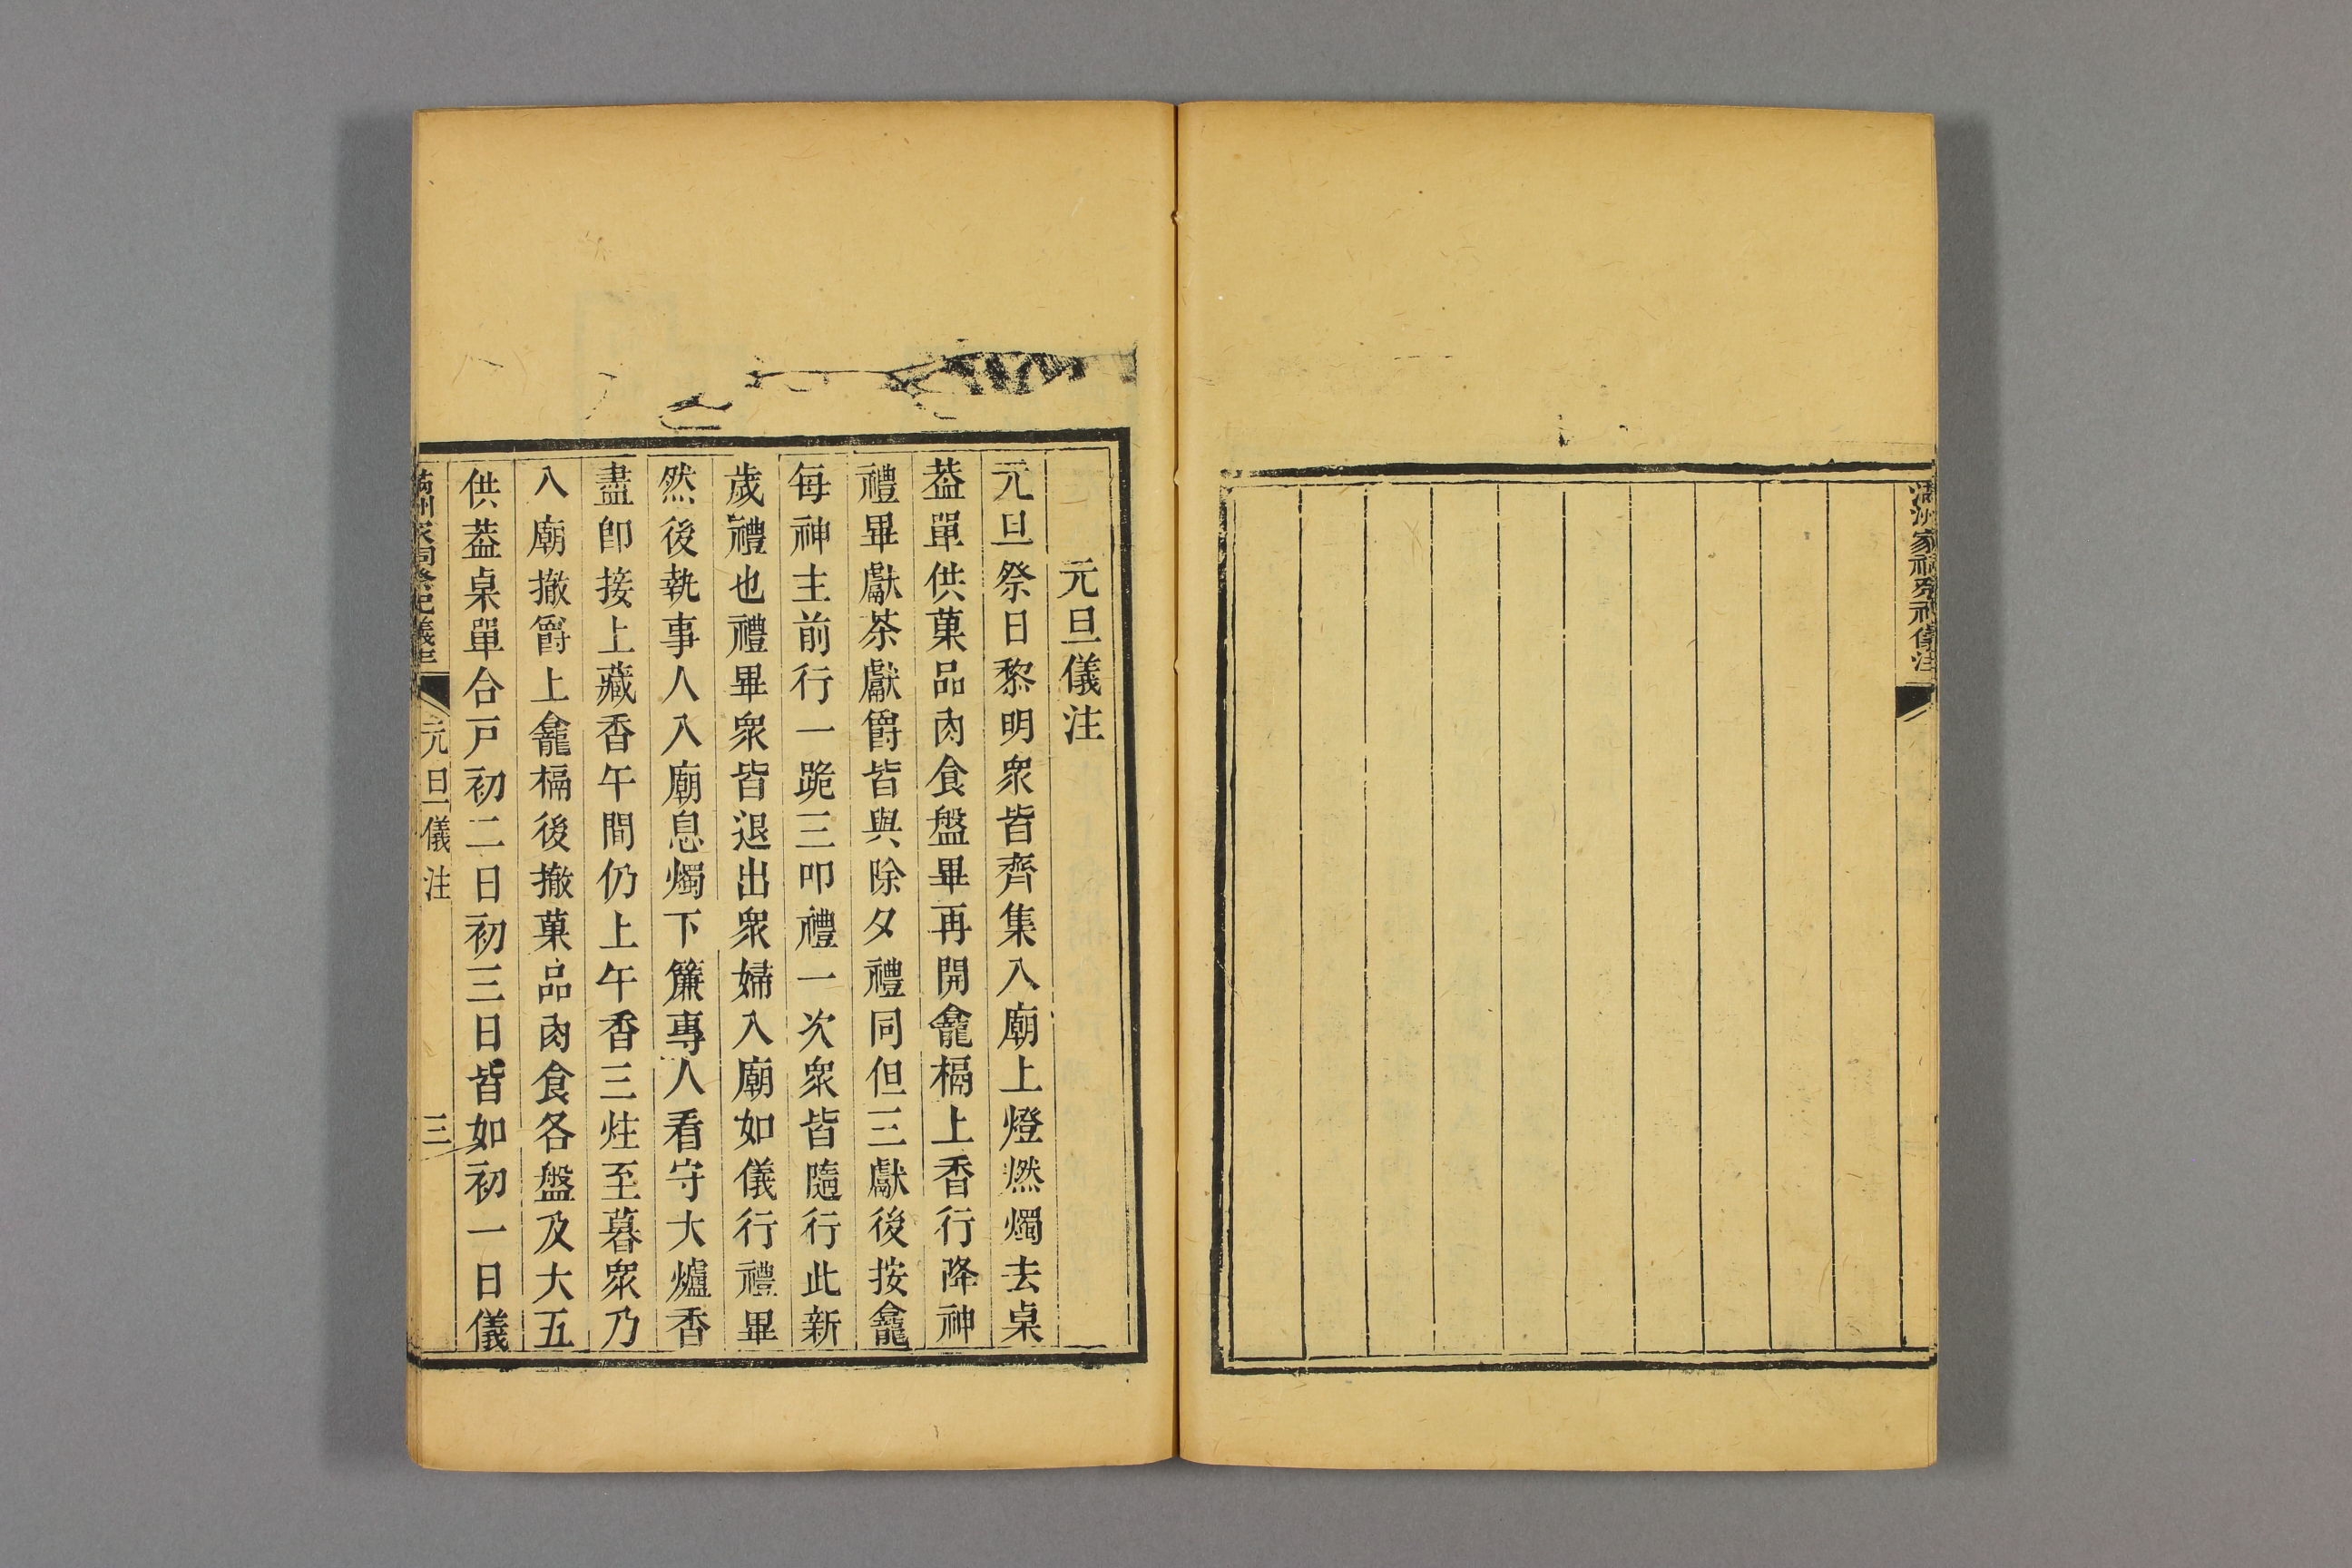 滿洲家祠祭祀儀注
元旦儀注
元旦祭日黎明衆皆齊集入廟上燈燃燭去桌
葢單供菓品肉食盤畢再開龕槅上香行降神
禮畢獻茶獻爵皆與除夕禮同但三獻後按龕
每神主前行一跪三叩禮一次衆皆隨行此新
歲禮也禮畢衆皆退出衆婦入廟如儀行禮畢
然後執事人入廟息燭下簾專人看守大爐香
盡卽接上藏香午間仍上午香三炷至暮衆乃
入廟撤爵上龕槅後撤菓品肉食各盤及大五
供葢桌單合戸初二日初三日皆如初一日儀
滿洲家祠祭祀儀注
元旦儀注
三